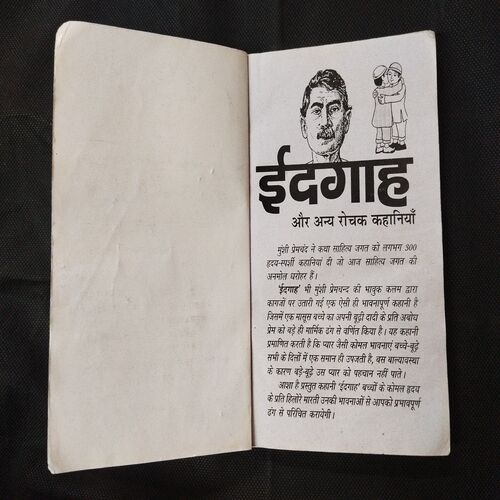 ईदगाह
और अन्य रोचक कहानियाँ
मुंशी प्रेमचंद ने कथा साहित्य जगत को लगभग 300
हृदय-स्पर्शी कहानियां दी जो आज साहित्य जगत की
अनमोल धरोहर हैं।
'ईदगाह' भी मुंशी प्रेमचन्द की भावुक कलम द्वारा
कागजों पर उतारी गई एक ऐसी ही भावनापूर्ण कहानी है
जिसमें एक मासूम बच्चे का अपनी बूढ़ी दादी के प्रति अबोध
प्रेम को बड़े ही मार्मिक ढंग से वर्णित किया है। यह कहानी
प्रमाणित करती है कि प्यार जैसी कोमल भावनाएं बच्चे-बूढ़े
सभी के दिलों में एक समान ही उपजती है, बस बाल्यावस्था
के कारण बड़े-बूढ़े उस प्यार को पहचान नहीं पाते।
आशा है प्रस्तुत कहानी 'ईदगाह' बच्चों के कोमल हृदय
के प्रति हिलोरें मारती उनकी भावनाओं से आपको प्रभावपूर्ण
ढंग से परिचित करायेगी।